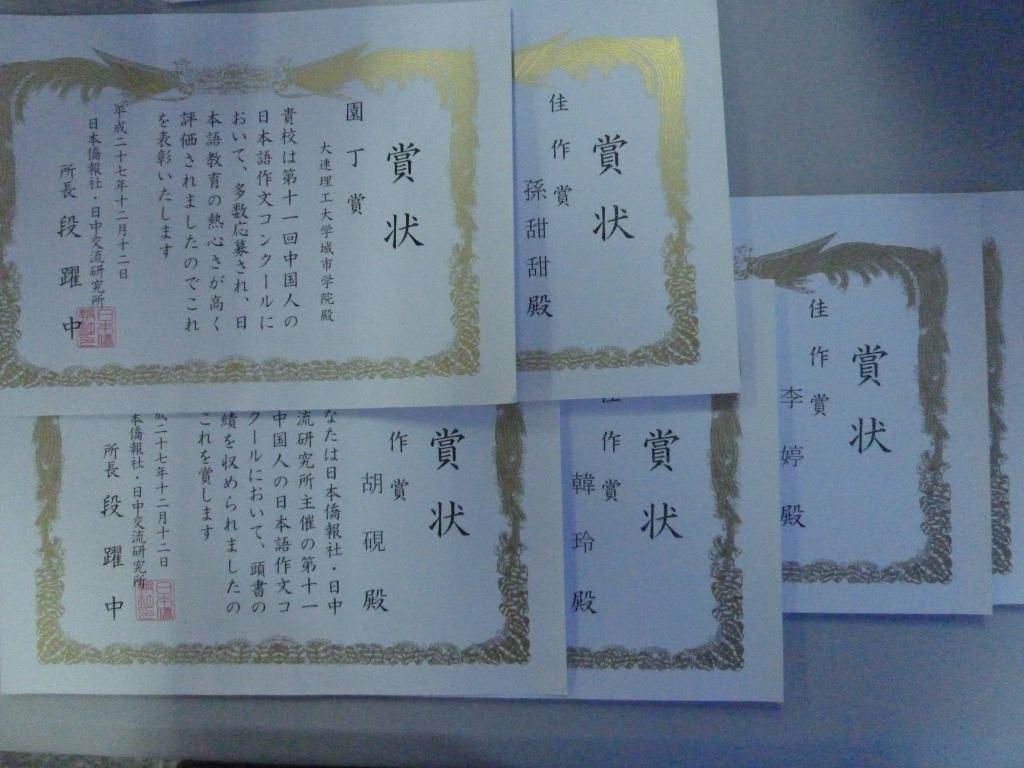 賞状
園丁賞
大連理工大学城市学院殿
貴校は第十一回中国人の
日本語作文コンクールに
おいて、多数応募され、日
本語教育の熱心さが高く
評価されましたのでこれ
を表彰いたします
平成二十七年十二月十二日
日本僑報社・日中交流研究所
所長 段躍中
賞状
佳作賞
孫甜甜殿
賞状
佳作賞
李婷殿
賞状
作賞
胡硯殿
なたは日本僑報社・日中
流研究所主催の第十一
中国人の日本語作文コ
クールにおいて、頭書の
績を収められましたの
これを賞します
成二十七年十二月十二日
本僑報社・日中交流研究所
所長 段躍中
賞状
佳作賞
韓玲殿